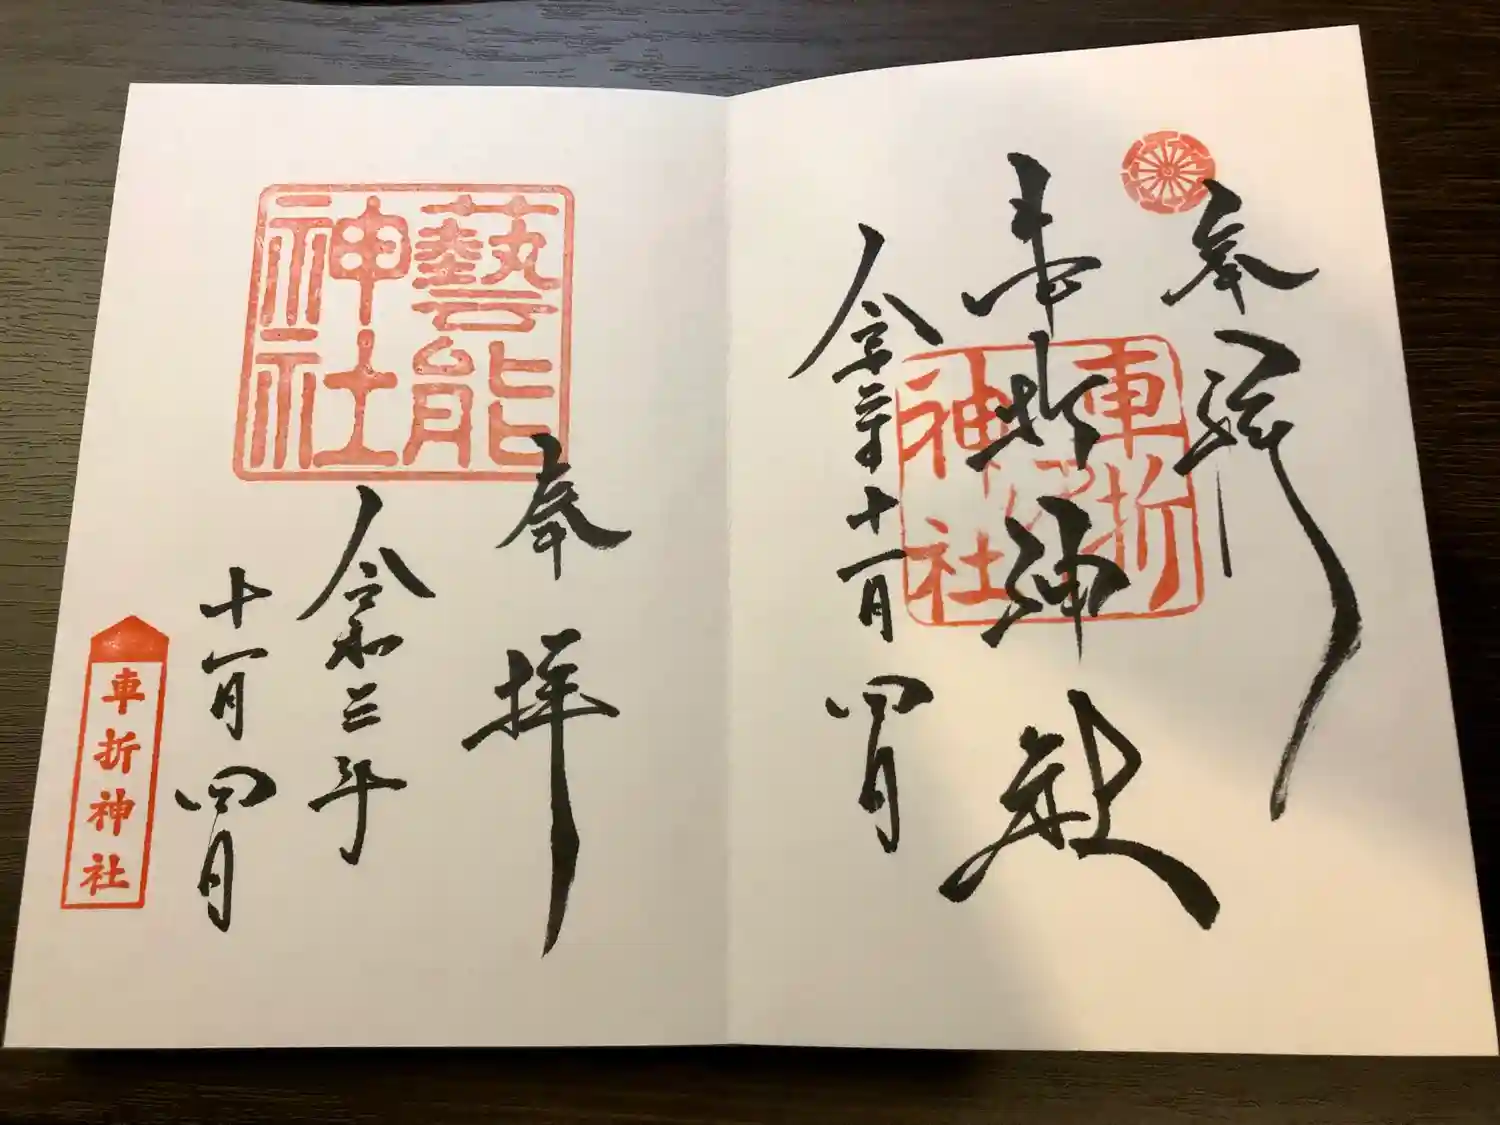 奉拝
車折神社
車折
神社
令和三年十一月四日
藝能
神社
奉拝
令和三年
十一月四日
車折神社